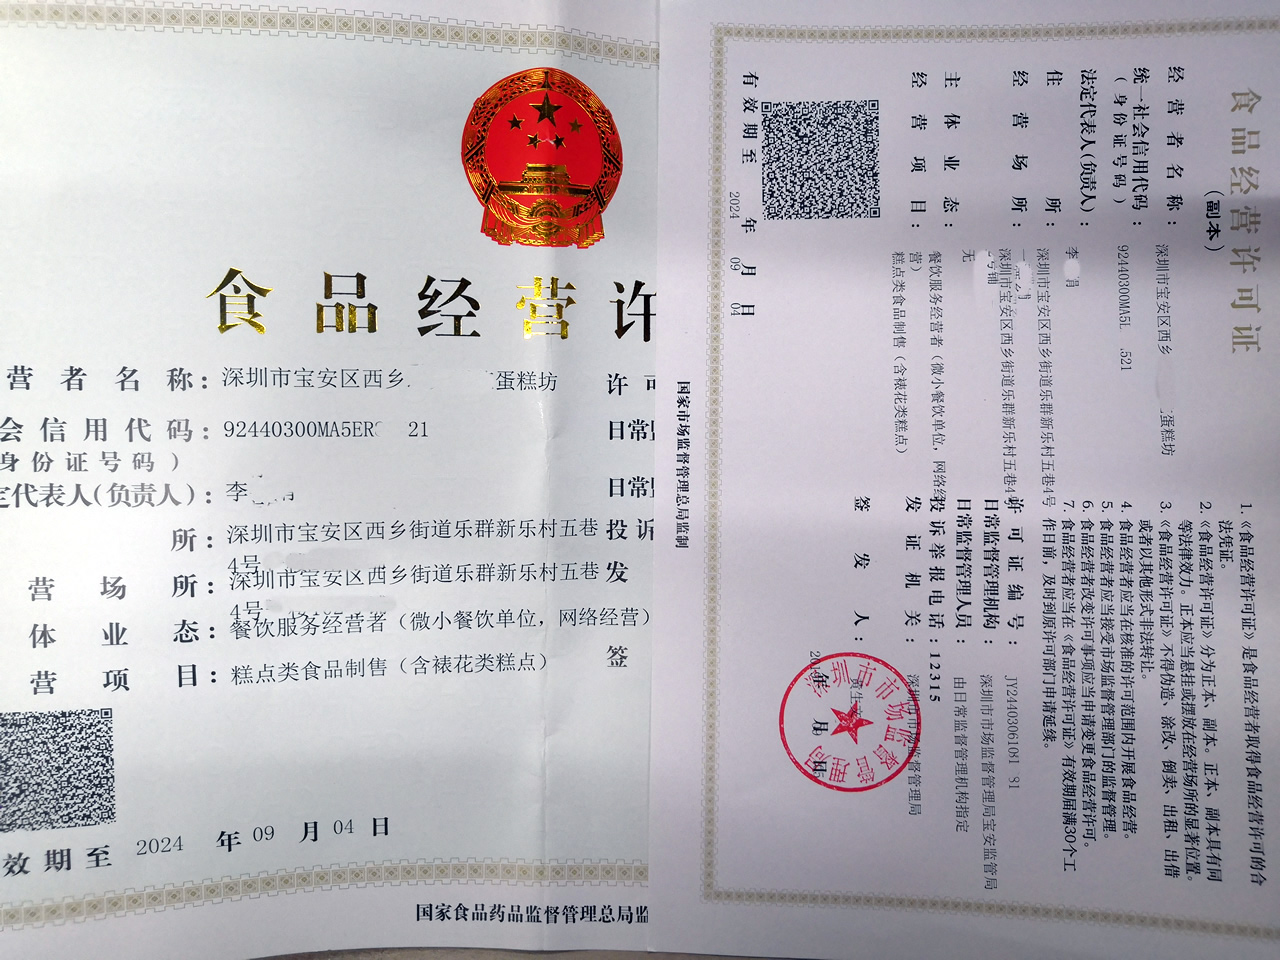 食品经营许
营者名称：深圳市宝安区西乡 蛋糕坊
许可
会信用代码：92440300MA5ER 21
日常监
身份证号码）
定代表人(负责人)：李
日常监
所：深圳市宝安区西乡街道乐群新乐村五巷
4号
投诉
营场所：深圳市宝安区西乡街道乐群新乐村五巷
4号
发
体业态：餐饮服务经营者（微小餐饮单位，网络经营）
签
营项目：糕点类食品制售（含裱花类糕点）
效期至 2024 年 09 月 04 日
国家食品药品监督管理总局监
食品经营许可证
（副本）
经营者名称：深圳市宝安区西乡 蛋糕坊
统一社会信用代码：92440300MA5L 521
（身份证号码）
法定代表人(负责人)：李
住所：深圳市宝安区西乡街道乐群新乐村五巷4号
经营场所：深圳市宝安区西乡街道乐群新乐村五巷4号
号铺
无
主体业态：餐饮服务经营者（微小餐饮单位，网络经
营）
经营项目：糕点类食品制售（含裱花类糕点）
有效期至 2024 年 09 月 04 日
1.《食品经营许可证》是食品经营者取得食品经营许可的合
法凭证。
2.《食品经营许可证》分为正本、副本。正本、副本具有同
等法律效力。正本应当悬挂或摆放在经营场所的显著位置。
3.《食品经营许可证》不得伪造、涂改、倒卖、出租、出借
或者以其他形式非法转让。
4. 食品经营者应当在核准的许可范围内开展食品经营。
5. 食品经营者应当接受市场监督管理部门的监督管理。
6. 食品经营者改变许可事项应当申请变更食品经营许可。
7. 食品经营者应当在《食品经营许可证》有效期届满30个工
作日前，及时到原许可部门申请延续。
许可证编号：JY24403061081 81
日常监督管理机构：深圳市市场监督管理局宝安监管局
日常监督管理人员：由日常监督管理机构指定
投诉举报电话：12315
发证机关：深圳市市场监督管理局
签发人：
年 月 日
深圳市市场监督管理局
国家市场监督管理总局监制